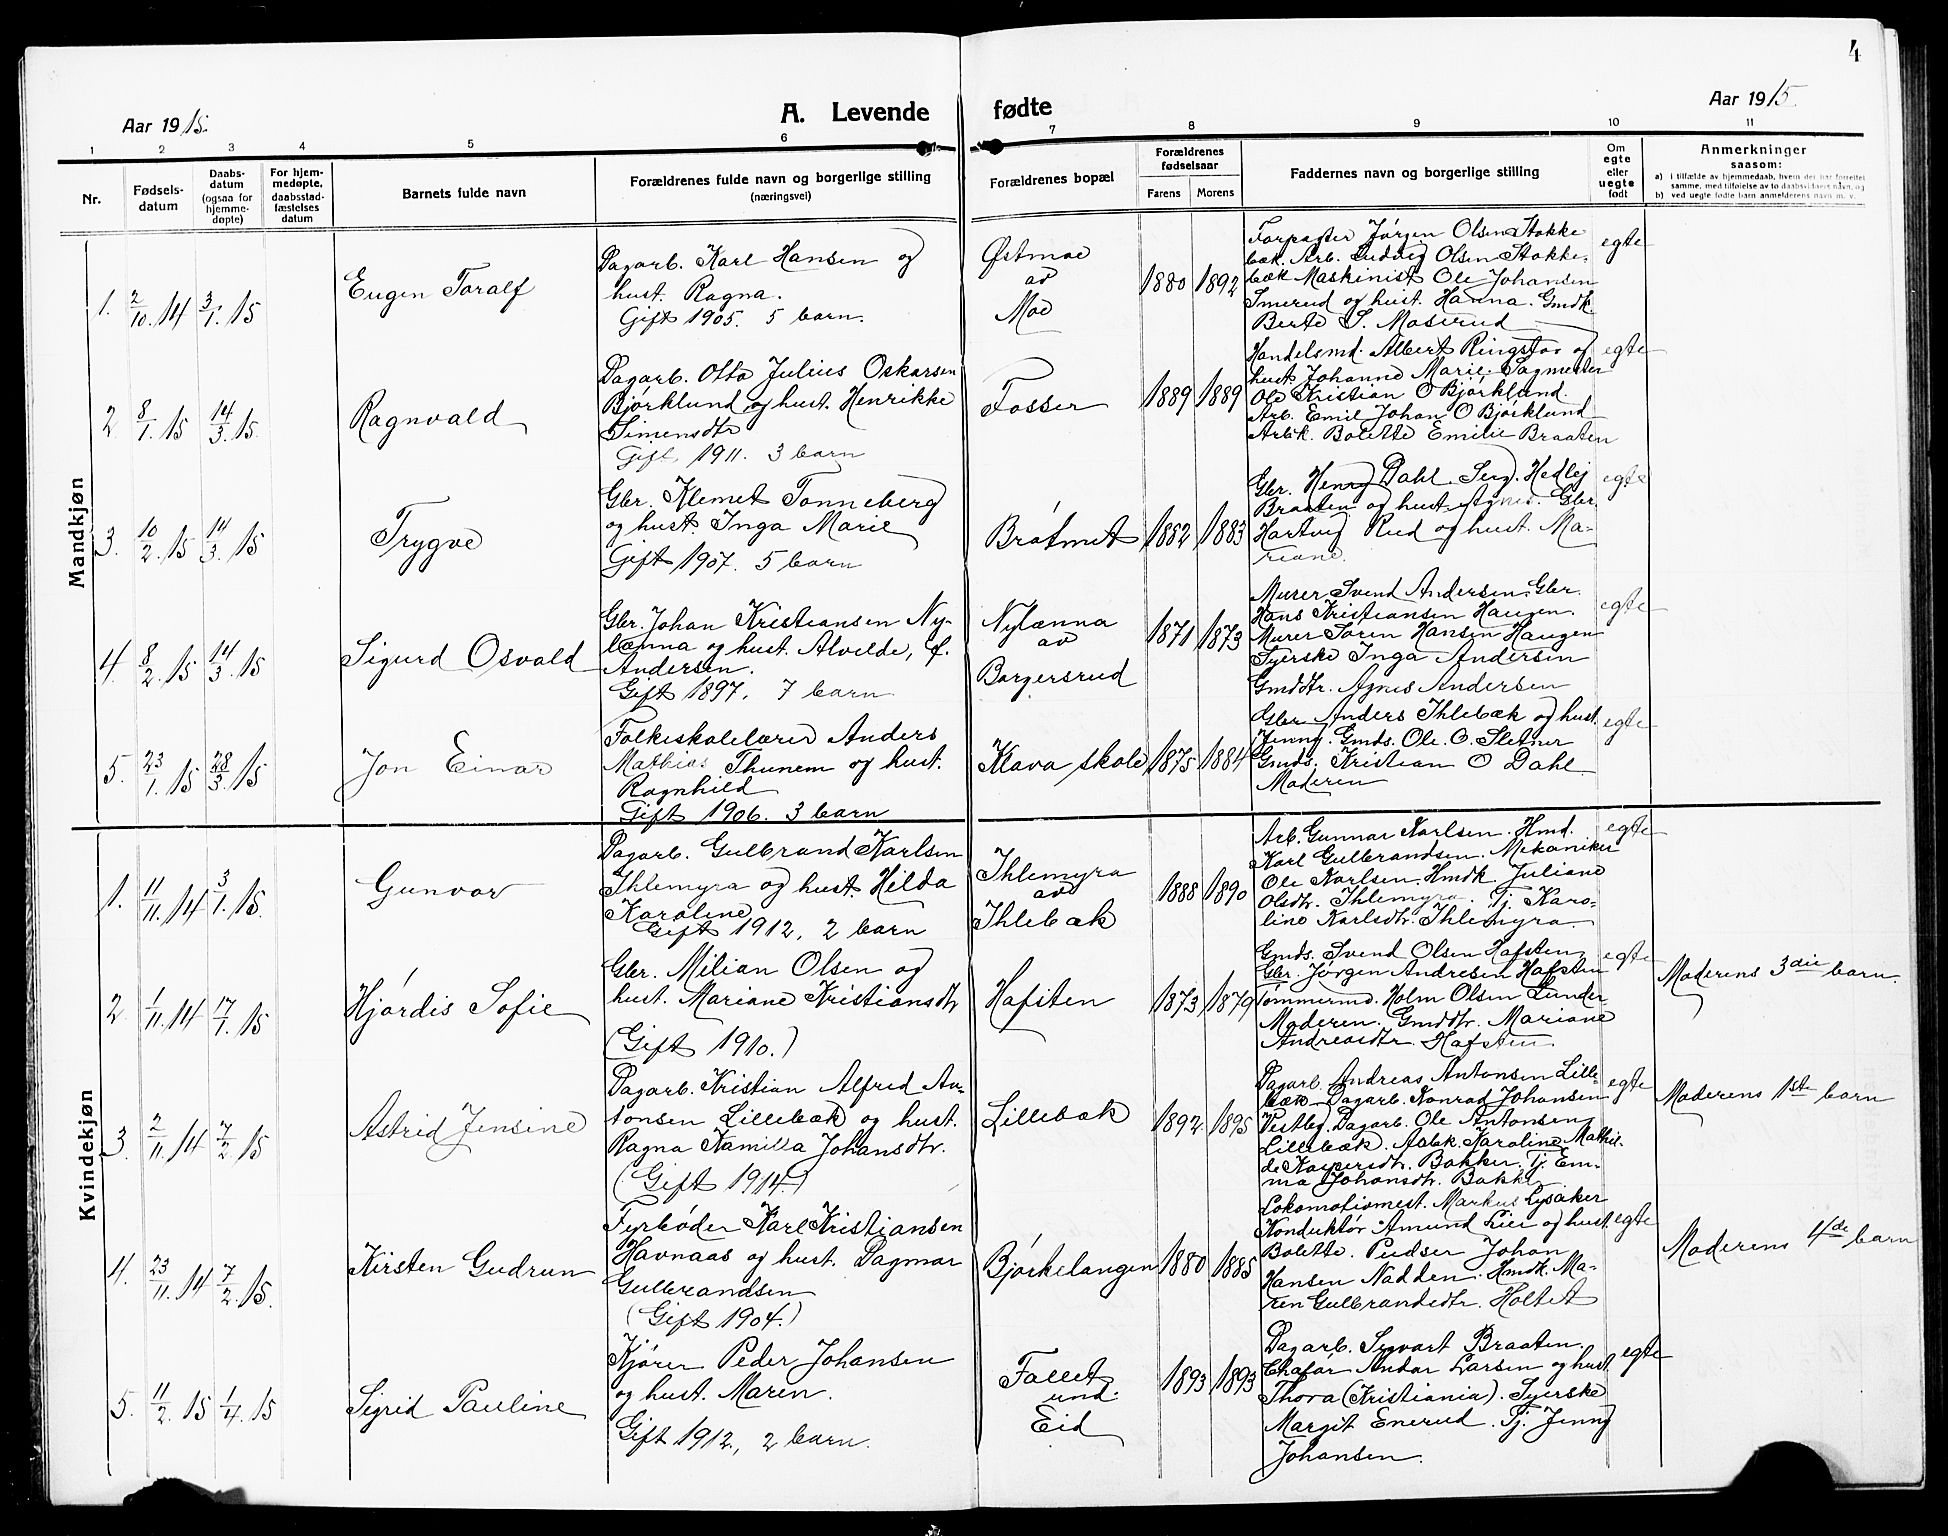 4
Aar 1915.
A. Levende fødte
Aar 1915.
1 2 3 4 5 6 7 8 9 10 11
Nr.
Fødsels-
datum
Daabs-
datum
(ogsaa for
hjemme-
døpte)
For hjem-
medøpte,
daabsstad-
fæstelses
datum
Barnets fulde navn
Forældrenes fulde navn og borgerlige stilling
(næringsvei)
Forældrenes bopæl
Forældrenes
fødselsaar
Farens Morens
Faddernes navn og borgerlige stilling
Om
egte
eller
uegte
født
Anmerkninger
saasom:
a) i tilfælde av hjemmedaab, hvem der har forrettet
samme, med tilføielse av to daabsvidners navn, og
b) ved uegte fødte barn anmelderens navn m. v.
Mandkjøn
1. 2/10. 14 3/1. 15
Eugen Toralf
Dagarb. Karl Hansen og
hust. Ragna.
Gift 1905. 5 barn.
Østmoe
av
Moe
1880 1892
Forpagter Jørgen Olsen Stokke
bæk. Arb. Ludvig Olsen Stokke-
bæk Maskinist Ole Johansen
Smerud og hust. Hanna. Gmdk.
Berte S. Moserud
egte
2. 8/1. 15 14/3. 15.
Ragnvald
Dagarb. Otto Julius Oskarsen
Bjørklund og hust. Henrikke
Simensdtr
Gift 1911. 3 barn
Fosser
1889 1889
Handelsmd. Albert Ringstor og
hust Johanne Marie. Sagmester
Ole Kristian O Bjørklund
Arb. Emil Johan O Bjørklund
Arbk. Bolette Emilie Braaten
egte
3. 10/2. 15 14/3. 15
Trygve
Gbr. Klemet Tonneberg
og hust. Inga Marie
Gift 1907. 5 barn
Bråtmet
1882 1883
Gbr. Henry Dahl. Serg. Hedlej
Braaten og hust. Agnes. Gbr.
Hartvig Rud og hust. Ma-
riane.
egte
4. 8/2. 15 14/3. 15
Sigurd Osvald
Gbr. Johan Kristiansen Ny-
lænna og hust. Alvilde, f.
Andersen.
Gift 1897. 7 barn
Nylænna
av
Borgersrud
1871 1873
Murer Svend Andersen. Gbr.
Hans Kristiansen Haugen.
Murer Søren Hansen Haugen
Syerske Inga Andersen
Gmddtr. Agnes Andersen
egte
5. 23/1. 15 28/3. 15
Jon Einar
Folkeskolelærer Anders
Mathias Thunem og hust.
Ragnhild
Gift 1906. 3 barn
Klava skole
1875 1884
Gbr Anders Ihlebæk og hust.
Jenny. Gmds. Ole O. Sletner
Gmds. Kristian O Dahl
Moderen
egte
Kvindekjøn
1. 11/11. 14 3/1. 15.
Gunvor
Dagarb. Gulbrand Karlsen
Ihlemyra og hust. Hilda
Karoline
Gift 1912, 2 barn
Ihlemyra
av
Ihlebæk
1888 1890
Arb. Gunnar Karlsen. Hmd.
Karl Gulbrandsen. Mekaniker
Ole Karlsen. Hmdk Juliane
Olsdtr. Ihlemyra. Tj. Karo-
line Karlsdtr. Ihlemyra.
egte
2. 1/11. 14 17/1. 15
Hjørdis Sofie
Gbr. Milian Olsen og
hust. Mariane Kristiansdtr
(Gift 1910.)
Hafsten
1873 1879
Gmds. Svend Olsen Hafsten
Gbr. Jørgen Andresen Hafsten
Tømmermd. Holm Olsen Lunder
Moderen. Gmddtr. Mariane
Andreasdtr. Hafsten.
egte
Moderens 3die barn.
3. 2/11. 14 7/2. 15
Astrid Jensine
Dagarb. Kristian Alfred An-
tonsen Lillebæk og hust.
Ragna Kamilla Johansdtr.
(Gift 1914.)
Lillebæk
1892 1895
Dagarb. Andreas Antonsen Lille-
bæk Dagarb. Konrad Johansen
Vestby. Dagarb. Ole Antonsen
Lillebæk. Arbk. Karoline Mathil-
de Kaspersdtr. Bakker. Tj. Em-
ma Johansdtr. Bakke
egte
Moderens 1ste barn
4. 23/11. 14 7/2. 15.
Kirsten Gudrun
Fyrbøder Karl Kristiansen
Havnaas og hust. Dagmar
Gulbrandsen
(Gift 1904.)
Bjørkelangen
1880 1885
Lokomotivmest. Markus Lysaker
Konduktør Amund Lie og hust.
Bolette. Pudser Johan
Hansen Nadden. Hmdk. Ma-
ren Gulbrandsdtr. Holtet
egte
Moderens 4de barn
5. 11/2. 15 1/4. 15
Sigrid Pauline
Kjører Peder Johansen
og hust. Maren.
Gift 1912, 2 barn.
Fallet
und.
Eid
1893 1893
Dagarb. Sigvart Braaten.
Chafør Andor Larsen og hust
Thora (Kristiania). Syerske
Margit Enerud. Tj. Jenny
Johansen
egte